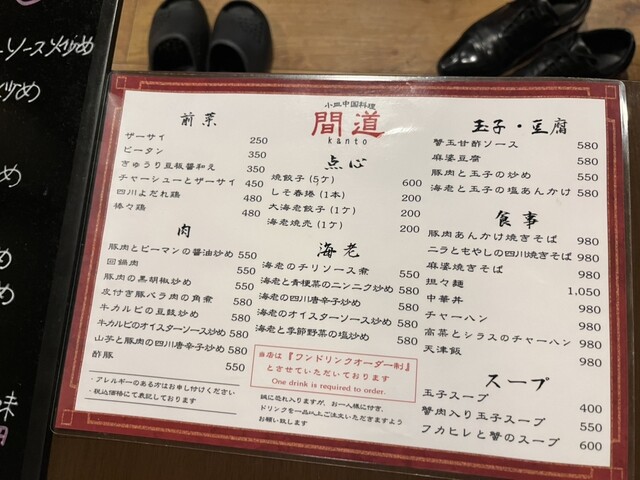 ソース炒め
炒め
め
め
め
味
円
小皿中国料理
間道
kanto
前菜
ザーサイ 250
ピータン 350
きゅうり豆板醤和え 350
チャーシューとザーサイ 450
四川よだれ鶏 480
棒々鶏 480
肉
豚肉とピーマンの醤油炒め 550
回鍋肉 580
豚肉の黒胡椒炒め 550
皮付き豚バラ肉の角煮 580
牛カルビの豆鼓炒め 580
牛カルビのオイスターソース炒め 580
山芋と豚肉の四川唐辛子炒め 580
酢豚 550
・アレルギーのある方はお申し付けください
・税込価格にて表記しております
点心
焼餃子(5ケ) 600
しそ春捲(1本) 200
大海老餃子(1ケ) 200
海老焼売(1ケ) 200
海老
海老のチリソース煮 550
海老と青梗菜のニンニク炒め 580
海老の四川唐辛子炒め 580
海老のオイスターソース炒め 580
海老と季節野菜の塩炒め 580
当店は『ワンドリンクオーダー制』
とさせていただいております
One drink is required to order.
誠に恐れ入りますが、お一人様に付き、
ドリンクを一品以上ご注文いただきますよう
お願い致します
玉子・豆腐
蟹玉甘酢ソース 580
麻婆豆腐 580
豚肉と玉子の炒め 550
海老と玉子の塩あんかけ 580
食事
豚肉あんかけ焼きそば 980
ニラともやしの四川焼きそば 980
麻婆焼きそば 980
担々麺 1,050
中華丼 980
チャーハン 980
高菜とシラスのチャーハン 980
天津飯 980
スープ
玉子スープ 400
蟹肉入り玉子スープ 550
フカヒレと蟹のスープ 600